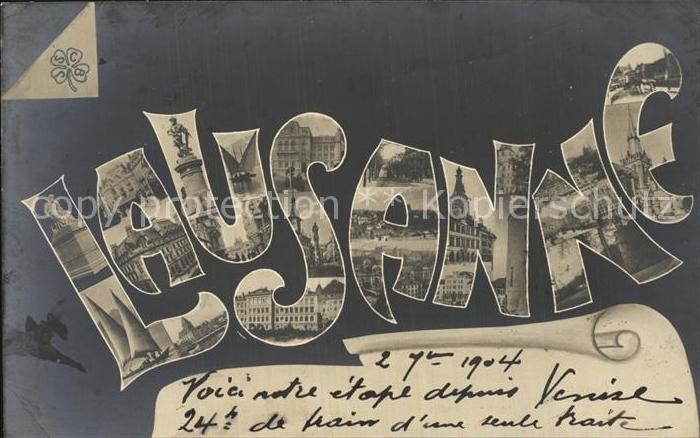 S I C B
LAUSANNE
copy protection Kopierschutz
2 7bre 1904
Voici notre étape depuis Venise
24h de train d'une seule traite